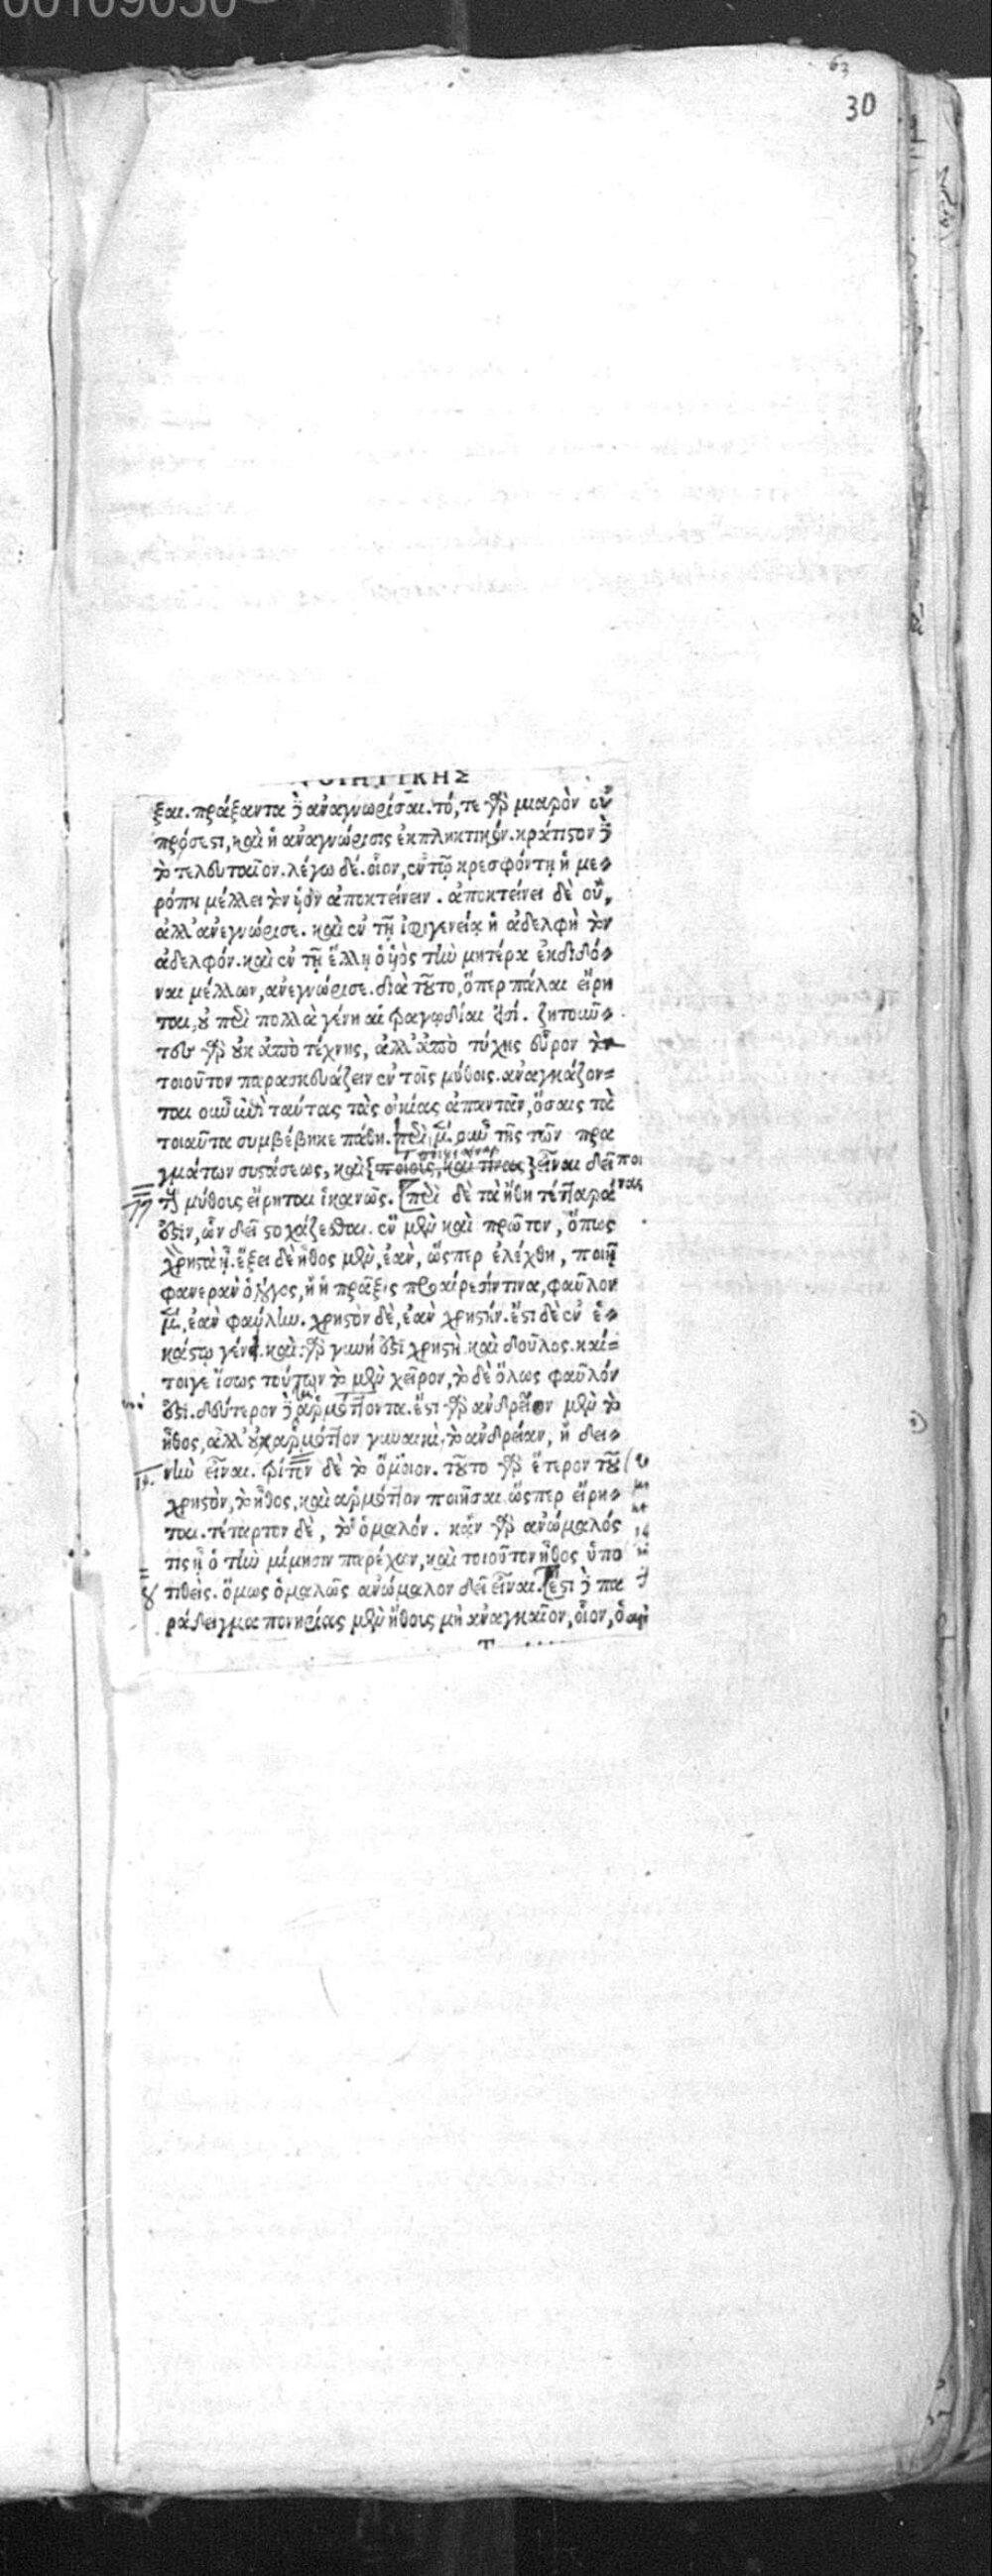 00109030
63
30
ΠΟΙΗΤΙΚΗΣ
ξαι. πράξαντα δὲ ἀναγνωρίσαι. τό, τε γὰρ μιαρὸν οὐ
πρόσεστι, καὶ ἡ ἀναγνώρισις ἐκπληκτικόν. κράτιστον δὲ
τὸ τελευταῖον. λέγω δέ. οἷον, ἐν τῷ κρεσφόντῃ ἡ με-
ρόπη μέλλει τὸν υἱὸν ἀποκτείνειν. ἀποκτείνει δὲ οὔ,
ἀλλ' ἀνεγνώρισε. καὶ ἐν τῇ ἰφιγενείᾳ ἡ ἀδελφὴ τὸν
ἀδελφόν. καὶ ἐν τῇ ἕλλῃ ὁ υἱὸς τὴν μητέρα ἐκδιδό-
ναι μέλλων, ἀνεγνώρισε. διὰ τοῦτο, ὅπερ πάλαι εἴρη
ται, οὐ περὶ πολλὰ γένη αἱ τραγῳδίαι εἰσί. ζητοῦν-
τες γὰρ οὐκ ἀπὸ τέχνης, ἀλλ' ἀπὸ τύχης εὗρον τὸ
τοιοῦτον παρασκευάζειν ἐν τοῖς μύθοις. ἀναγκάζον-
ται οὖν ἐπὶ ταύτας τὰς οἰκίας ἀπαντᾶν, ὅσαις τὰ
τοιαῦτα συμβέβηκε πάθη. περὶ μὲν οὖν τῆς τῶν πρα
γμάτων συστάσεως, καὶ ποίοις, καὶ τίνας εἶναι δεῖ ποι
τοὺς μύθοις εἴρηται ἱκανῶς. περὶ δὲ τὰ ἤθη τέτταρά νας
77
ἐστιν, ὧν δεῖ στοχάζεσθαι. ἓν μὲν καὶ πρῶτον, ὅπως
χρηστὰ ᾖ. ἕξει δὲ ἦθος μὲν, ἐὰν, ὥσπερ ἐλέχθη, ποιῇ
φανερὰν ὁ λόγος, ἢ ἡ πρᾶξις προαίρεσίν τινα, φαῦλον
μὲν, ἐὰν φαύλην. χρηστὸν δὲ, ἐὰν χρηστήν. ἔστι δὲ ἐν ἑ-
κάστῳ γένει. καὶ γὰρ γυνή ἐστι χρηστὴ. καὶ δοῦλος. καί-
τοιγε ἴσως τούτων τὸ μὲν χεῖρον, τὸ δὲ ὅλως φαῦλόν
ἐστι. δεύτερον δὲ ἁρμόττοντα. ἔστι γὰρ ἀνδρεῖον μὲν τὸ
ἦθος, ἀλλ' οὐχ ἁρμόττον γυναικὶ. τὸ ἀνδρείαν, ἢ δει-
νὴν εἶναι. τρίτον δὲ τὸ ὅμοιον. τοῦτο γὰρ ἕτερον τοῦ
χρηστὸν, τὸ ἦθος, καὶ ἁρμόττον ποιῆσαι. ὥσπερ εἴρη-
ται. τέταρτον δὲ, τὸ ὁμαλόν. κἂν γὰρ ἀνώμαλός
τις ᾖ ὁ τὴν μίμησιν παρέχων, καὶ τοιοῦτον ἦθος ὑπο
τιθεὶς. ὅμως ὁμαλῶς ἀνώμαλον δεῖ εἶναι. ἔστι δὲ πα
ράδειγμα πονηρίας μὲν ἤθους μὴ ἀναγκαῖον, οἷον, ὁ